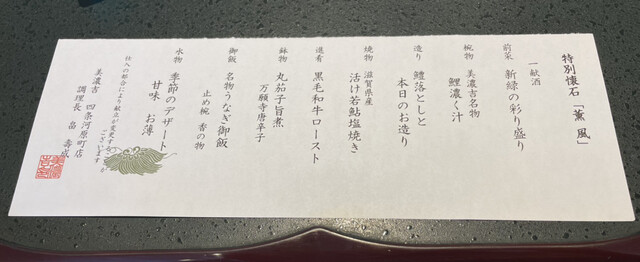 特別懐石「薫風」
一献酒
前菜 新緑の彩り盛り
椀物 美濃吉名物
鯉濃く汁
造り 鱧落としと
本日のお造り
焼物 滋賀県産
活け若鮎塩焼き
進肴 黒毛和牛ロースト
鉢物 丸茄子旨煮
万願寺唐辛子
御飯 名物うなぎ御飯
止め椀 香の物
水物 季節のデザート
甘味 お薄
仕入の都合により献立が変更する
ございますが
美濃吉 四条河原町店
調理長 畠 寿成